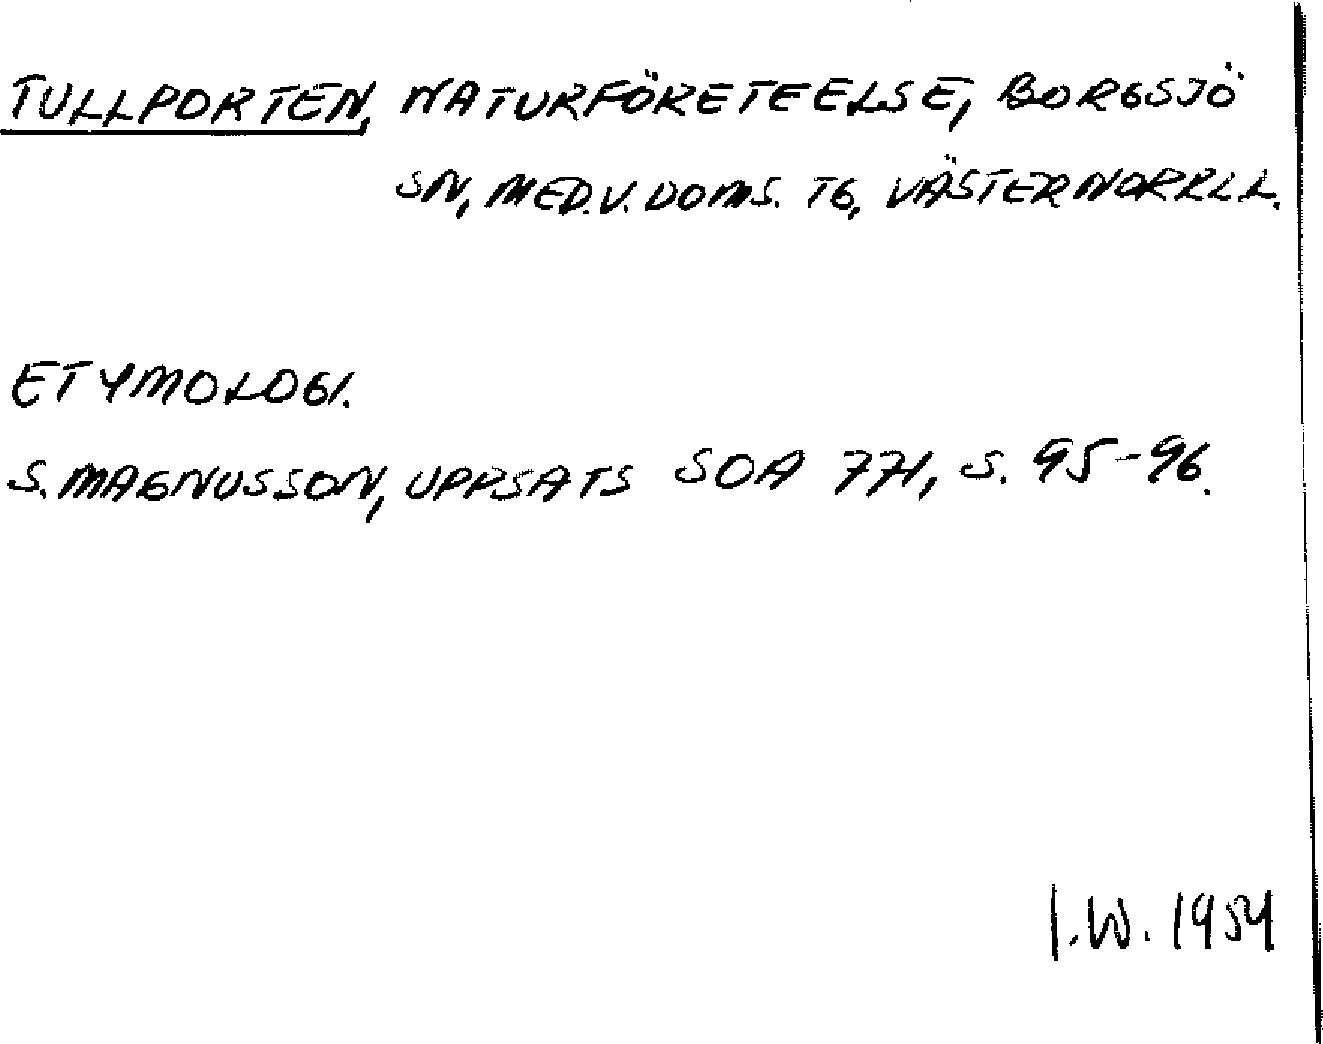 TULLPORTEN, NATURFÖRETEELSE, BORGSJÖ
SN, MED.V. DOMS. TG, VÄSTERNORRL L.
ETYMOLOGI.
S. MAGNUSSON, UPPSATS SOA 771, S. 95-96.
I.W. 1954